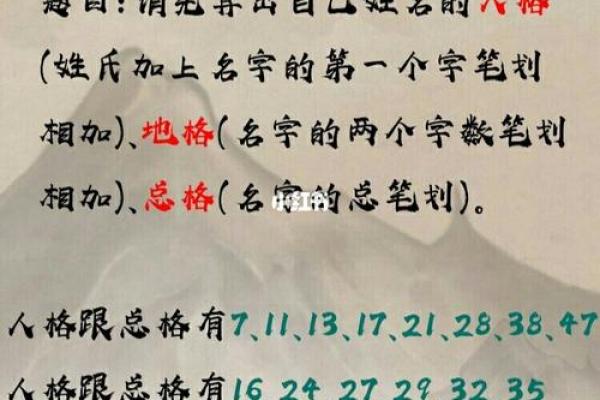 题目:请先算出自己姓名的人格
(姓氏加上名字的第一个字笔划
相加)、地格(名字的两个字数笔划
相加)、总格(名字的总笔划)。
小红书
人格跟总格有7、11、13、17、21、28、38、47
人格跟总格有16 24 27 29 32 35